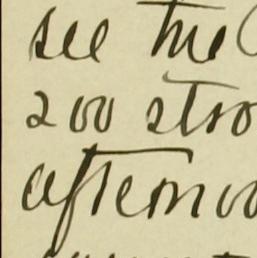 see the
200 stro
afternoo